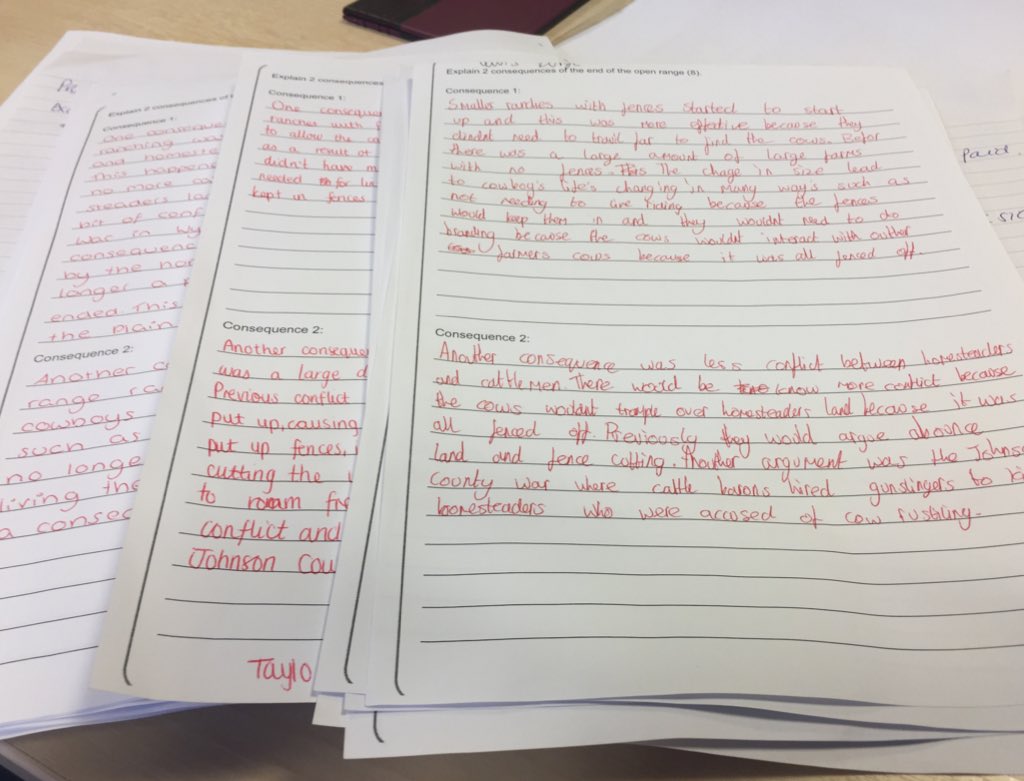 Explain 2 consequences of the end of the open range (8).
Consequence 1:
Smaller ranches with fences started to start
up and this was more effective because they
didnt need to travil far to find the cows. Befor
there was a large amount of large farms
with no fences. This The chage in size lead
to cowboy's life's changing in many way's such as
not needing to line riding because the fences
would keep them in and they wouldnt need to do
branding because the cows wouldnt interact with
farmers cows because it was all fenced off.
Consequence 2:
Another consequence was less conflict between homesteaders
and cattle men. There would be know more conflict because
the cows wouldnt trample over homesteaders land because it was
all fenced off. Previously they would argue
land and fence cutting. Another argument was the Johns
County war where cattle barons hired gunslingers to
homesteaders who were accused of cow rustling.
Explain 2 consequences
Consequence 1:
One conseque
ranches with
to allow the
as a result of
didn't have m
needed for
kept in fences
Consequence 2:
Another conseque
was a large d
Previous conflict
put up, causing
put up fences,
cutting the
to roam
conflict and
Johnson Cou
Taylo
Explain 2 consequences of
Consequence 1:
One conseque
ranching was
and homeste
This happen
no more
steaders la
bit of conf
was in Wy
consequenc
by the
longer a
ended. This
the Plain
Consequence 2:
Another c
range ra
cowboys
such as
no longe
living the
a consec
paid.